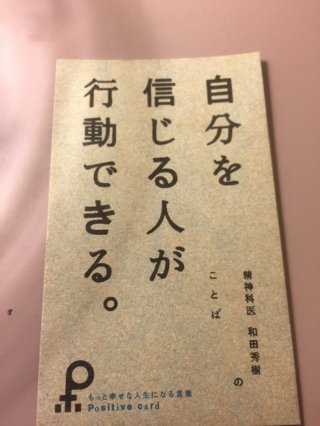 自分を
信じる人が
行動できる。
精神科医 和田秀樹の
ことば
もっと幸せな人生になる言葉
Positive card